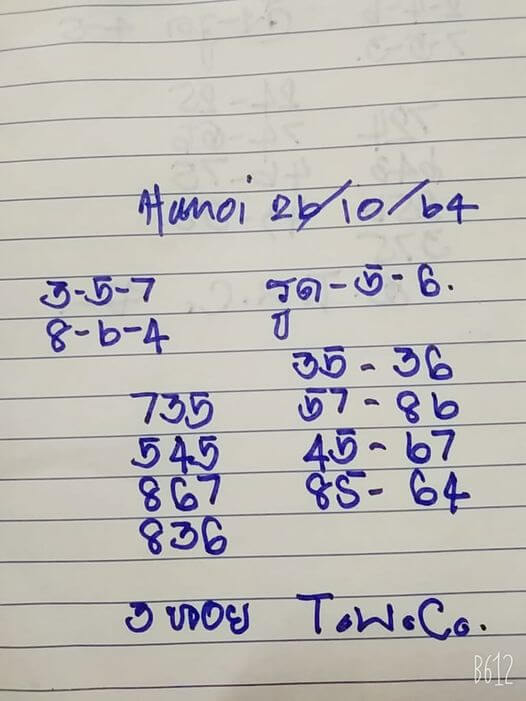 Hanoi 26/10/64
3-5-7 รูด-5-6.
8-6-4
35-36
735 57-86
545 45-67
867 85-64
836
3 หอย T.W.Co.
B612